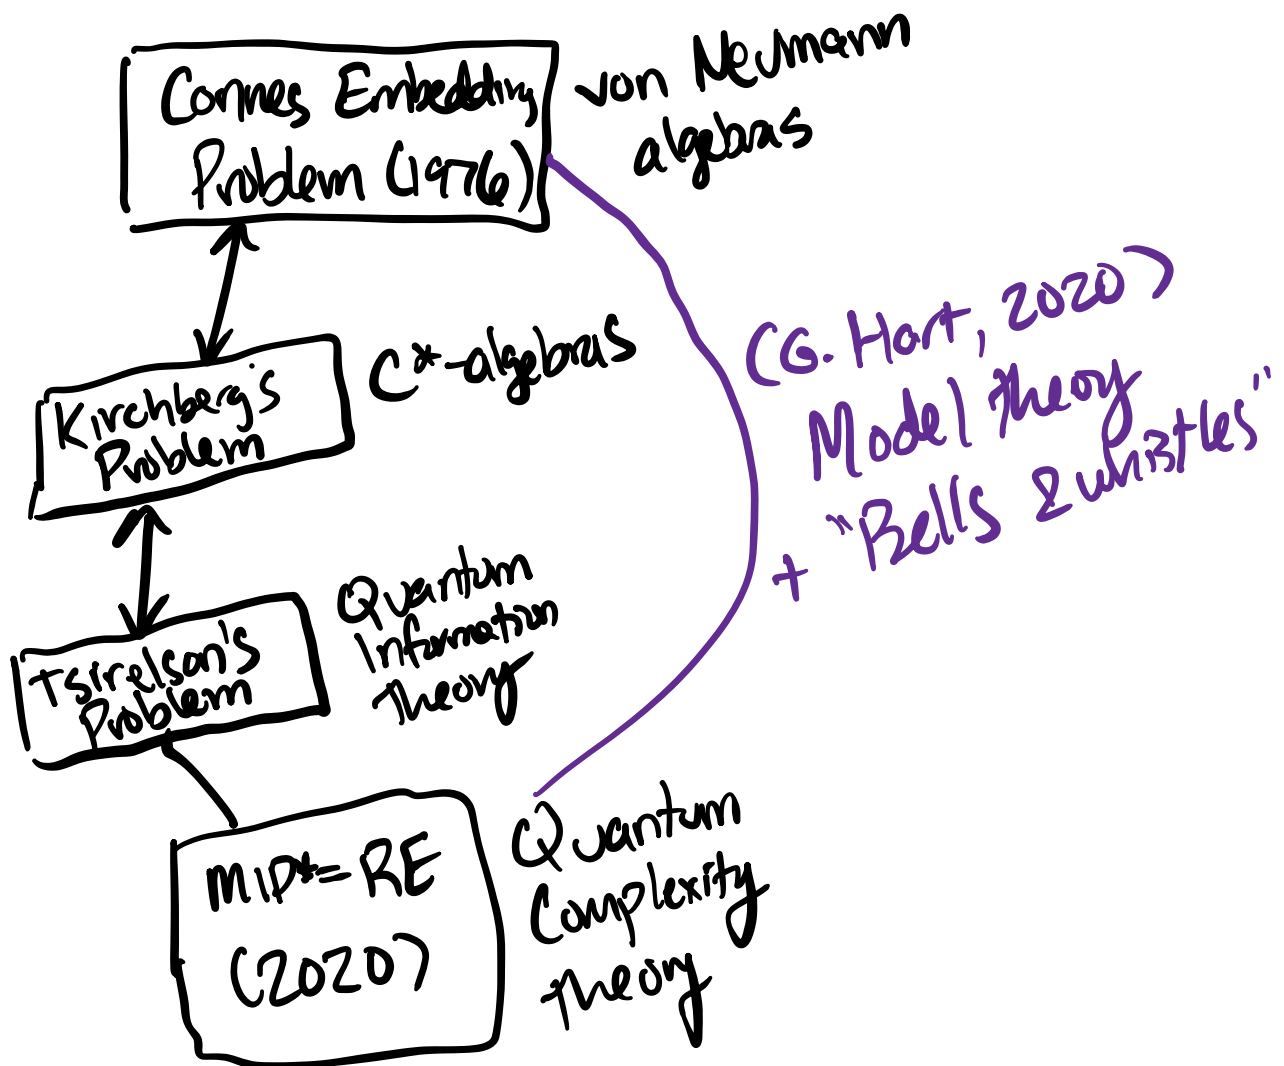 Connes Embedding
Problem (1976)
von Neumann
algebras
Kirchberg's
Problem
C*-algebras
(G. Hart, 2020)
Model Theory
+ "Bells & whistles"
Tsirelson's
Problem
Quantum
Information
Theory
MIP*= RE
(2020)
Quantum
Complexity
Theory